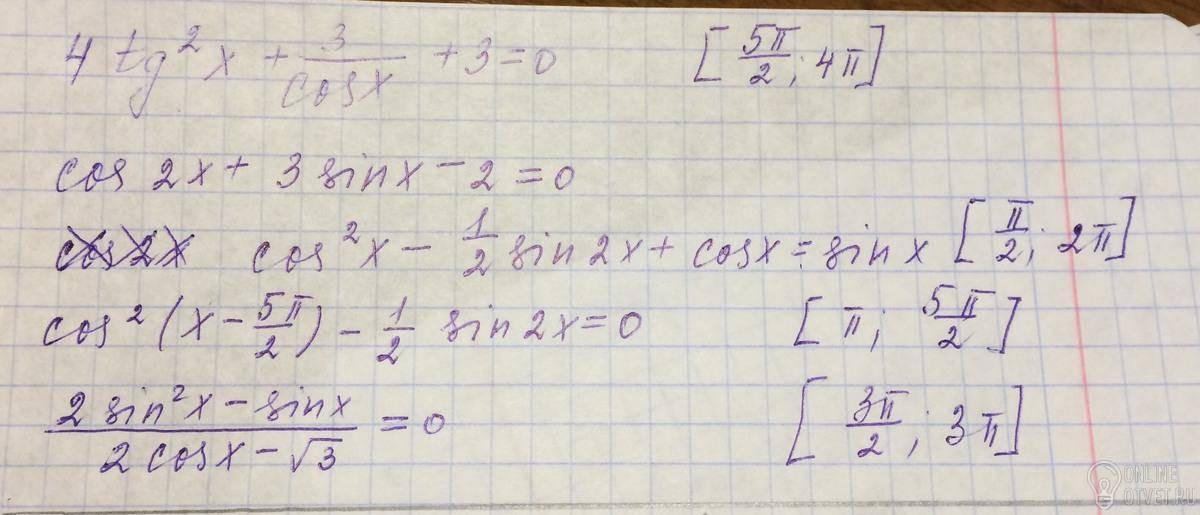 4 tg²x + 3/cosx + 3 = 0 [5π/2; 4π]
cos 2x + 3 sinx − 2 = 0
cos2x cos²x − 1/2 sin2x + cosx = sinx [π/2; 2π]
cos²(x − 5π/2) − 1/2 sin2x = 0 [π; 5π/2]
(2 sin²x − sinx)/(2 cosx − √3) = 0 [3π/2; 3π]
ONLINE
OTVET.RU